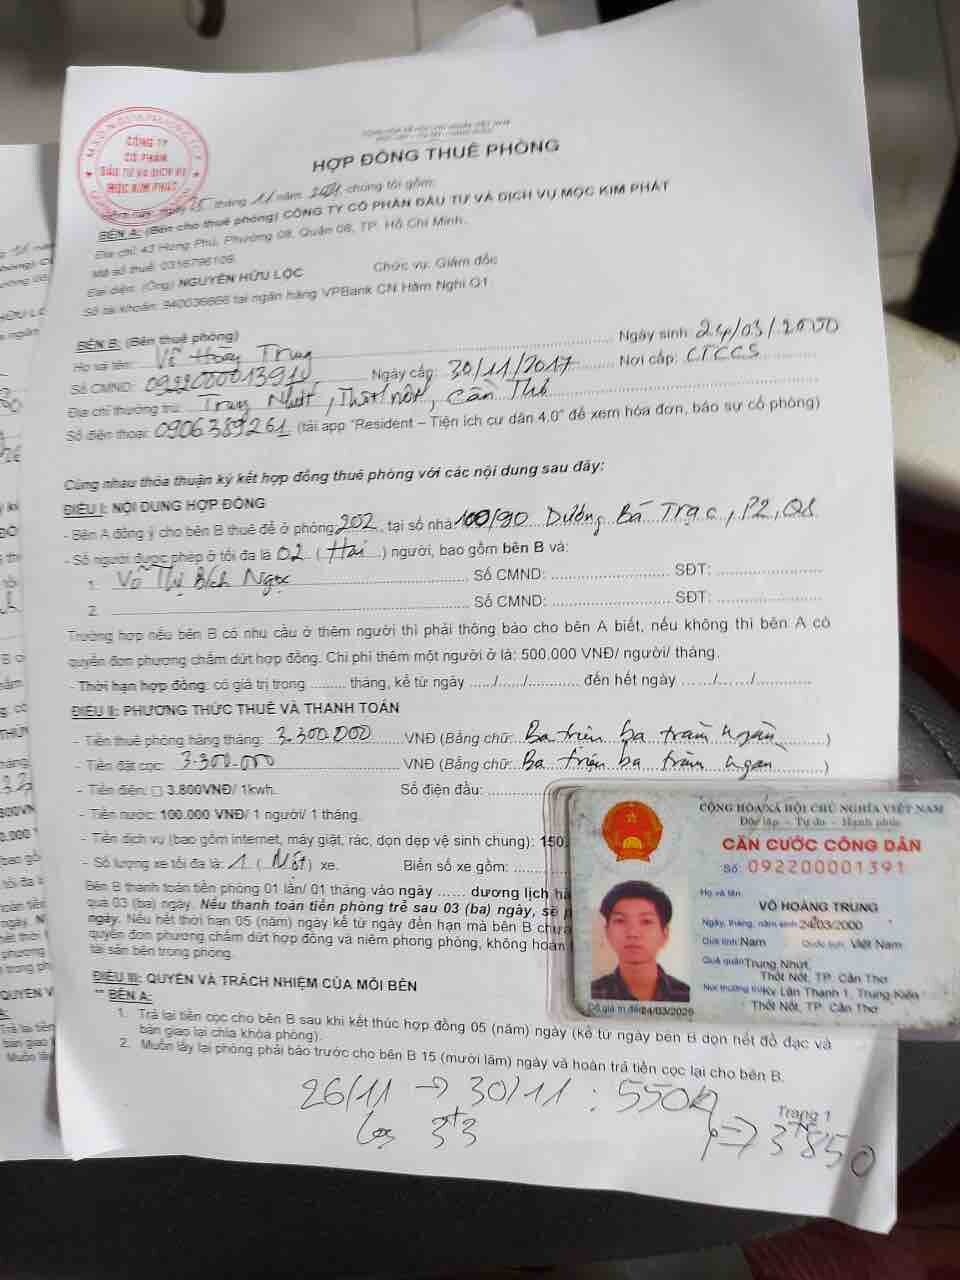 CỘNG HÒA XÃ HỘI CHỦ NGHĨA VIỆT NAM
HỢP ĐỒNG THUÊ PHÒNG
CÔNG TY
CỔ PHẦN
ĐẦU TƯ VÀ DỊCH VỤ
MỘC KIM PHÁT
Hôm nay, ngày 25 tháng 11 năm 2021, chúng tôi gồm:
BÊN A: (Bên cho thuê phòng) CÔNG TY CỔ PHẦN ĐẦU TƯ VÀ DỊCH VỤ MỘC KIM PHÁT
Địa chỉ: 43 Hưng Phú, Phường 08, Quận 08, TP. Hồ Chí Minh.
Mã số thuế: 0316796109
Đại diện: (Ông) NGUYỄN HỮU LỘC Chức vụ: Giám đốc
Số tài khoản: 940036666 tại ngân hàng VPBank CN Hàm Nghi Q1
BÊN B: (Bên thuê phòng)
Họ và tên: Võ Hoàng Trung Ngày sinh: 24/03/2000
Số CMND: 092200001391 Ngày cấp: 30/11/2017 Nơi cấp: CTCCS
Địa chỉ thường trú: Trung Nhứt, Thốt nốt, Cần Thơ
Số điện thoại: 0906389261 (tải app "Resident – Tiện ích cư dân 4.0" để xem hóa đơn, báo sự cố phòng)
Cùng nhau thỏa thuận ký kết hợp đồng thuê phòng với các nội dung sau đây:
ĐIỀU I: NỘI DUNG HỢP ĐỒNG
- Bên A đồng ý cho bên B thuê để ở phòng 202, tại số nhà 100/90 Dương Bá Trạc, P2, Q8
- Số người được phép ở tối đa là 02 (Hai) người, bao gồm bên B và:
1. Võ Thị Bích Ngọc Số CMND: SĐT:
2. Số CMND: SĐT:
Trường hợp nếu bên B có nhu cầu ở thêm người thì phải thông báo cho bên A biết, nếu không thì bên A có
quyền đơn phương chấm dứt hợp đồng. Chi phí thêm một người ở là: 500.000 VNĐ/ người/ tháng.
- Thời hạn hợp đồng: có giá trị trong ......... tháng, kể từ ngày ...../...../............ đến hết ngày ....../....../............
ĐIỀU II: PHƯƠNG THỨC THUÊ VÀ THANH TOÁN
- Tiền thuê phòng hàng tháng: 3.300.000 VNĐ (Bằng chữ: Ba triệu ba trăm ngàn )
- Tiền đặt cọc: 3.300.000 VNĐ (Bằng chữ: Ba triệu ba trăm ngàn )
- Tiền điện: □ 3.800VNĐ/ 1kwh. Số điện đầu:
- Tiền nước: 100.000 VNĐ/ 1 người/ 1 tháng.
- Tiền dịch vụ (bao gồm internet, máy giặt, rác, dọn dẹp vệ sinh chung): 150
- Số lượng xe tối đa là: 1 (Một) xe. Biển số xe gồm:
Bên B thanh toán tiền phòng 01 lần/ 01 tháng vào ngày ...... dương lịch
quá 03 (ba) ngày. Nếu thanh toán tiền phòng trễ sau 03 (ba) ngày, sẽ
ngày. Nếu hết thời hạn 05 (năm) ngày kể từ ngày đến hạn mà bên B chưa
quyền đơn phương chấm dứt hợp đồng và niêm phong phòng, không hoàn
tài sản bên trong phòng.
ĐIỀU III: QUYỀN VÀ TRÁCH NHIỆM CỦA MỖI BÊN
BÊN A:
1. Trả lại tiền cọc cho bên B sau khi kết thúc hợp đồng 05 (năm) ngày (kể từ ngày bên B dọn hết đồ đạc và
bàn giao lại chìa khóa phòng).
2. Muốn lấy lại phòng phải báo trước cho bên B 15 (mười lăm) ngày và hoàn trả tiền cọc lại cho bên B.
26/11 → 30/11 : 550k
Trang 1
Cọc 3tr3
⇒ 3tr850
CỘNG HÒA XÃ HỘI CHỦ NGHĨA VIỆT NAM
Độc lập – Tự do – Hạnh phúc
CĂN CƯỚC CÔNG DÂN
Số: 092200001391
Họ và tên:
VÕ HOÀNG TRUNG
Ngày, tháng, năm sinh: 24/03/2000
Giới tính: Nam Quốc tịch: Việt Nam
Quê quán: Trung Nhứt,
Thốt Nốt, TP. Cần Thơ
Nơi thường trú: Kv Lân Thạnh 1, Trung Kiên
Thốt Nốt, TP. Cần Thơ
Có giá trị đến: 24/03/2025